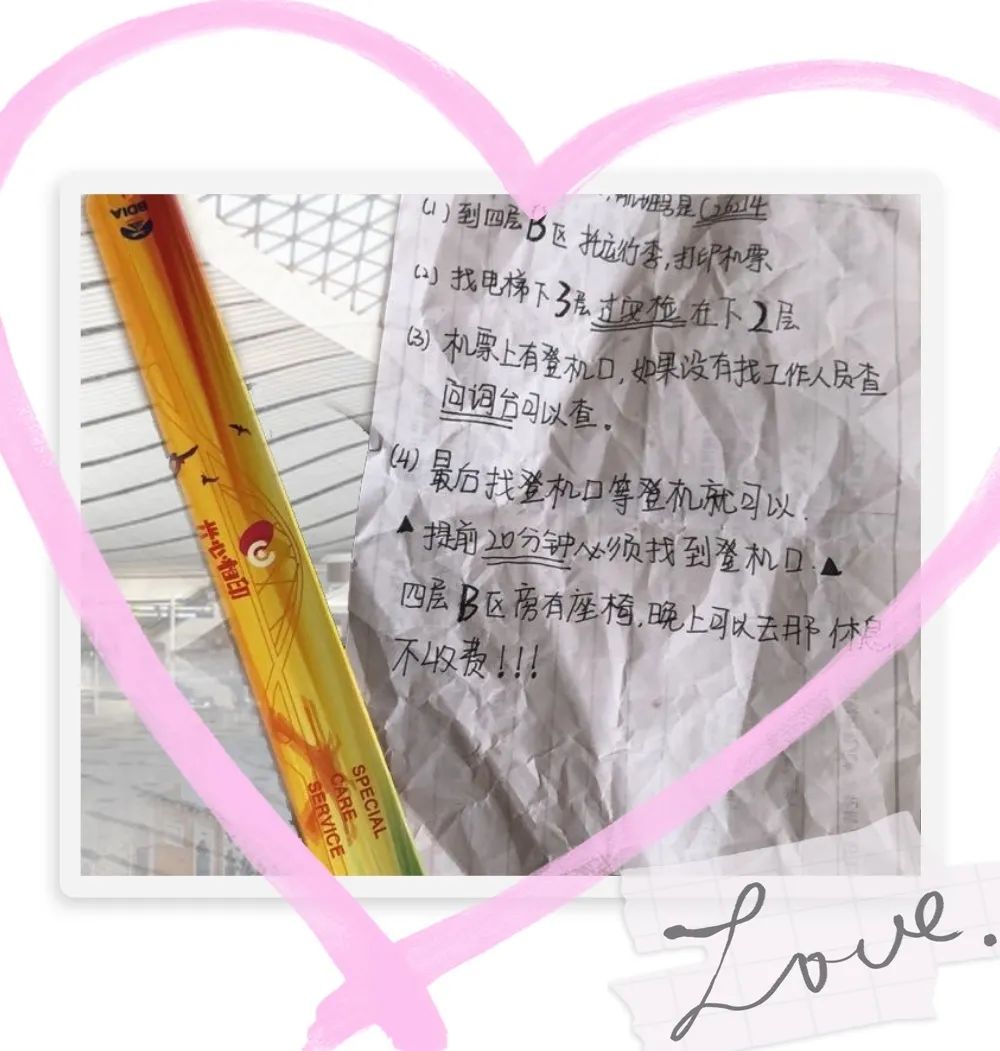 航班号是CZ6214
(1)到四层B区托运行李,打印机票
(2)找电梯下3层过安检在下2层
(3)机票上有登机口,如果没有找工作人员查
问询台可以查。
(4)最后找登机口等登机就可以.
▲提前20分钟必须找到登机口.▲
四层B区旁有座椅,晚上可以去那休息
不收费!!!
BDIA
木心相印
SPECIAL
CARE
SERVICE
Love.